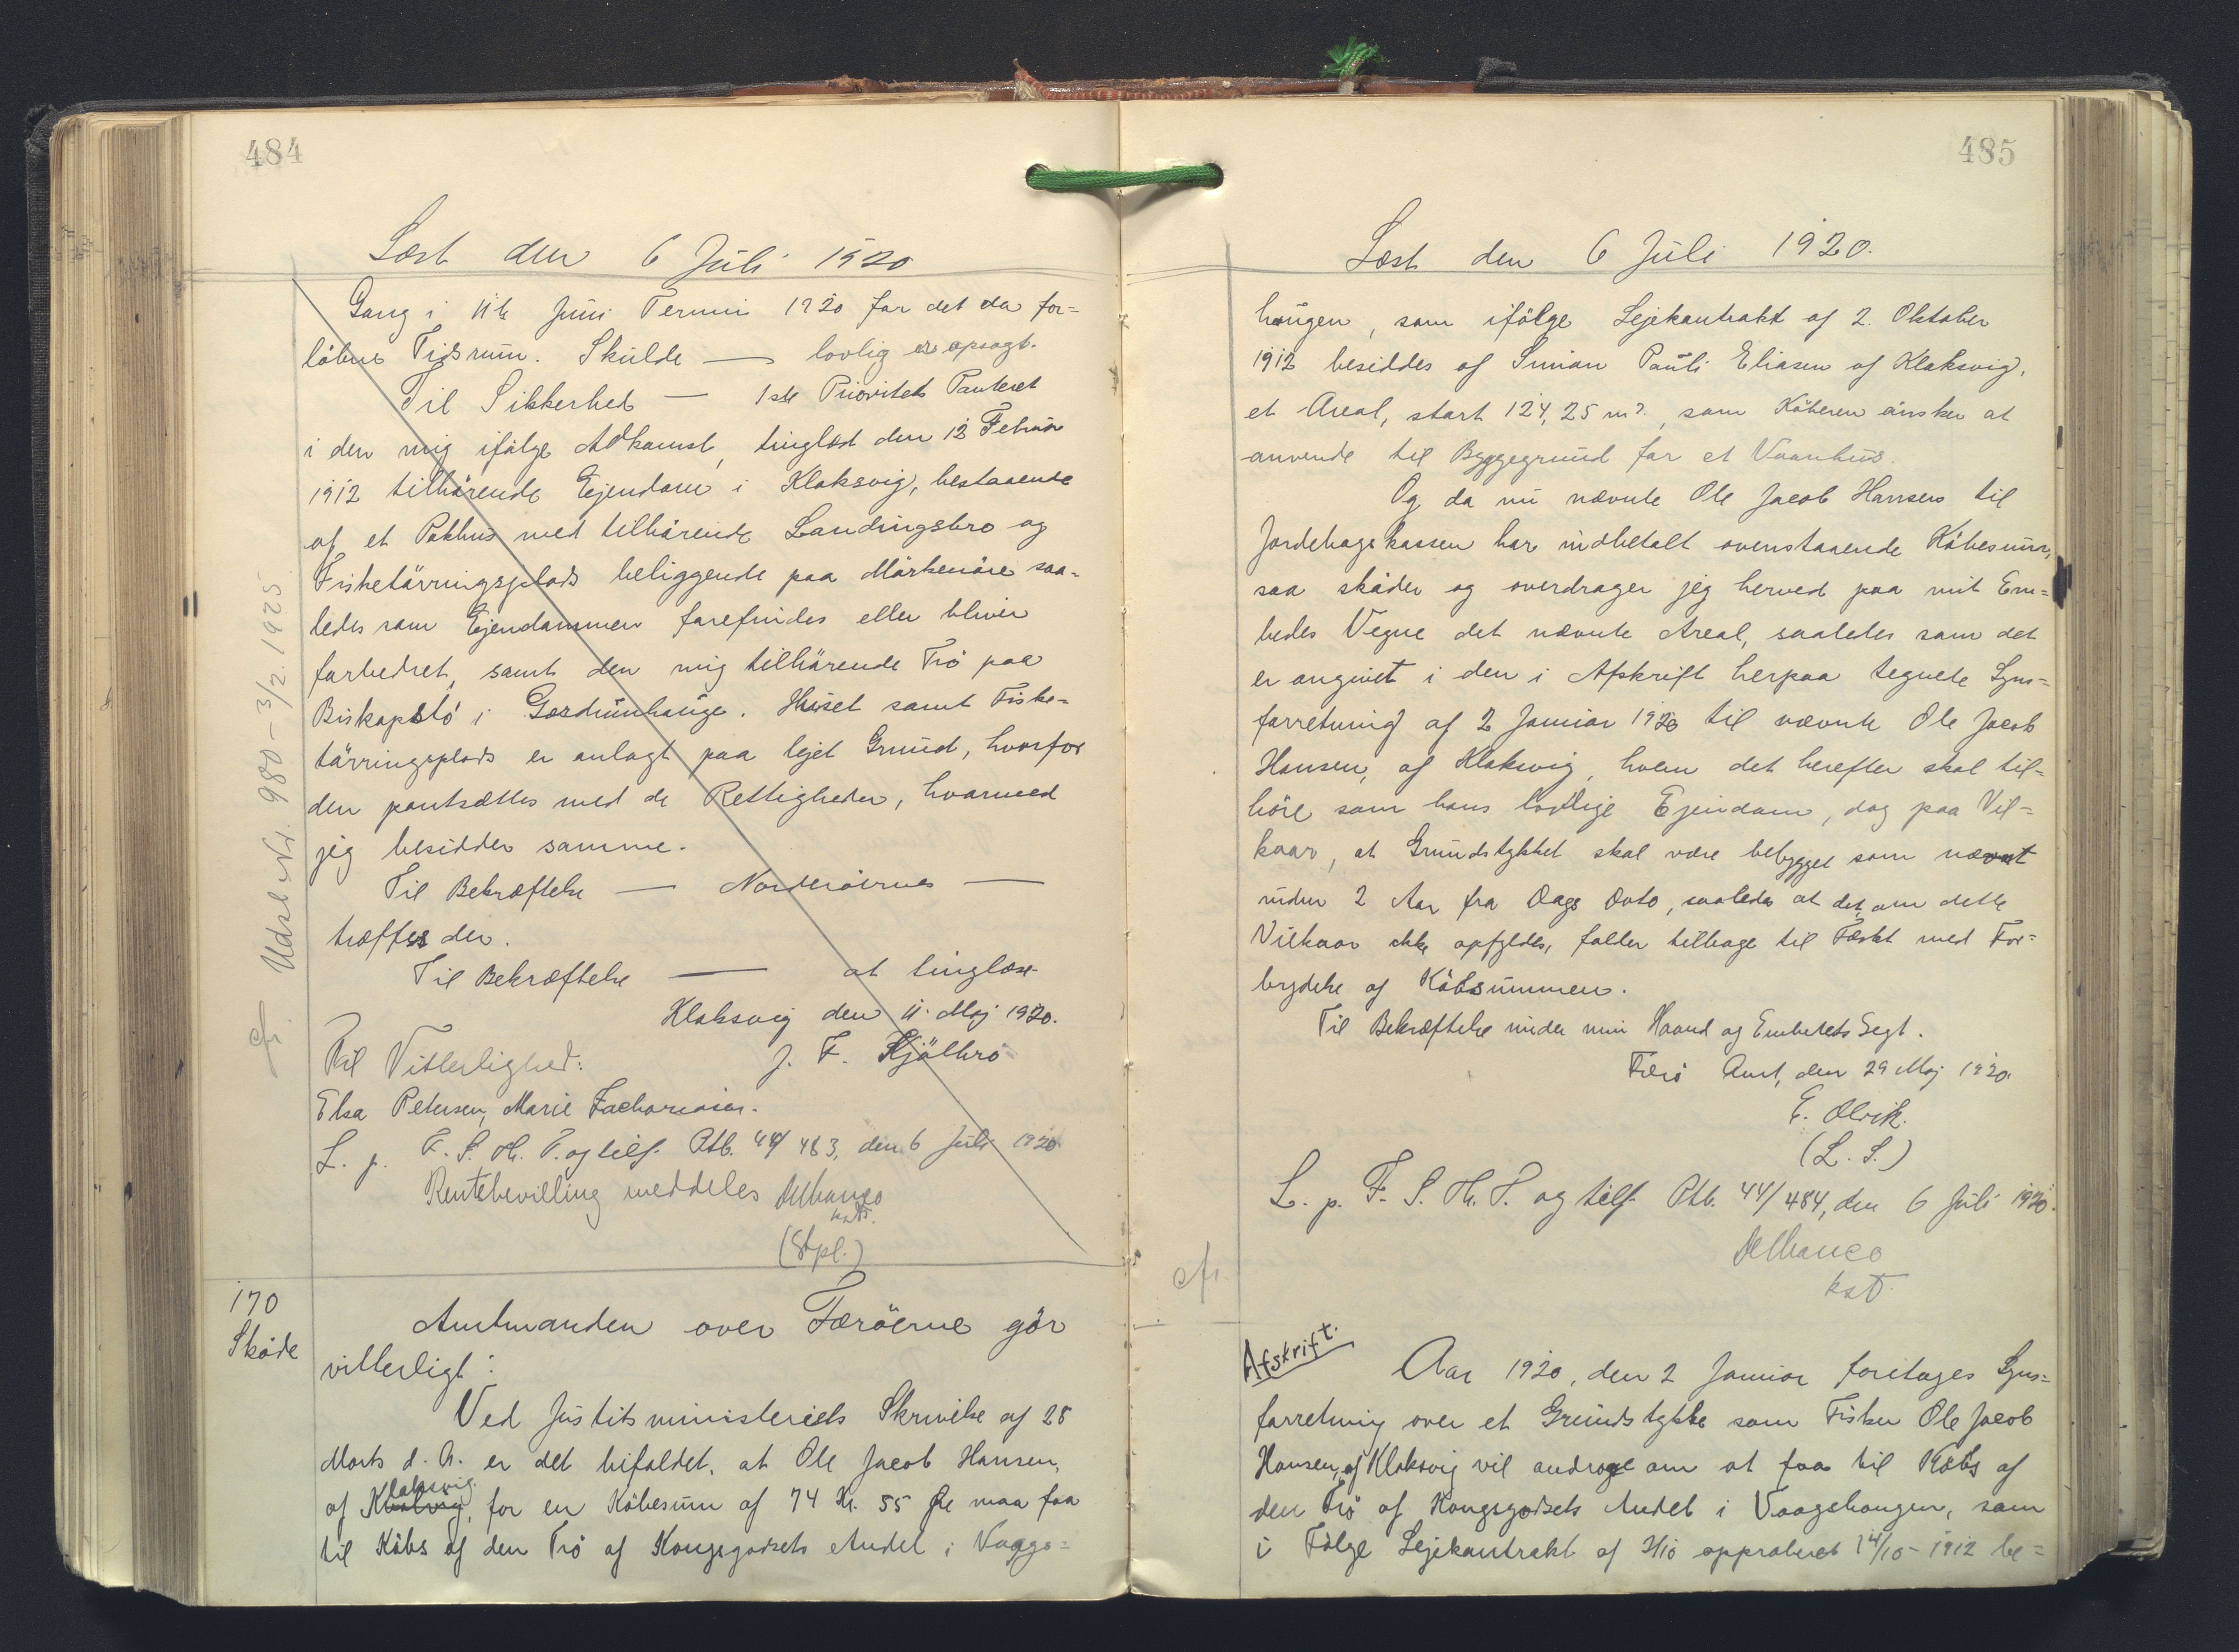 484
Læst den 6 Juli 1920
Gang i 11te Juni Termin 1920 for det da for=
løbne Tidsrum. Skulde — lovlig er opsagt.
Til Sikkerhed — 1ste Prioritets Panteret
i den mig ifølge Adkomst, tinglæst den 12 Februar
1912 tilhørende Ejendom i Klaksvig, bestaaende
af et Pakhus med tilhørende Landingsbro og
Fisketørringsplads beliggende paa Mørkenøre saa=
ledes som Ejendommen forefindes eller bliver
forbedret, samt den mig tilhørende Trø paa
Biskopstø i Gerdumhauge. Huset samt Fiske=
tørringsplads er anlagt paa lejet Grund, hvorfor
den pantsættes med de Rettigheder, hvormed
jeg besidder samme.
Til Bekræftelse — Norderøernes —
træffes der.
Til Bekræftelse — at tinglæse
Klaksvig den 11. Maj 1920.
Til Vitterlighed: J. F. Kjølbro
Elsa Petersen, Marie Zachariasen.
L. p. F. S. Th. P. og tilf. Ptb. 44/483, den 6 Juli 1920.
Rentebevilling meddeles
kst.
(Stpl.)
cfr. Udsl. Nr. 980 - 3/2. 1925
170
Skøde
Amtmanden over Færøerne gör
vitterligt:
Ved Justitsministeriets Skrivelse af 28
Marts d. A. er det bifaldet, at Ole Jacob Hansen,
af Klaksvig, for en Købesum af 74 Kr. 55 Øre maa faa
til Købs af den Trø af Kongsgodsets Andel i Vaags=
485
Læst den 6 Juli 1920.
haugen, som ifølge Lejekontrakt af 2. Oktober
1912 besiddes af Simon Pauli Eliasen af Klaksvig,
et Areal, stort 124,25 m2. som Køberen ønsker at
anvende til Byggegrund for et Vaanhus.
Og da nu nævnte Ole Jacob Hansen til
Jordebogskassen har indbetalt ovenstaaende Købesum,
saa skøder og overdrager jeg herved paa mit Em=
bedes Vegne det nævnte Areal, saaledes som det
er angivet i den i Afskrift herpaa tegnede Syns=
forretning af 2 Januar 1920 til nævnte Ole Jacob
Hansen, af Klaksvig, hvem det herefter skal til=
høre som hans lovlige Ejendom, dog paa Vil=
kaar, at Grundstykket skal være bebygget som nævnt
inden 2 Aar fra Dags Dato, saaledes at det, om dette
Vilkaar ikke opfyldes, falder tilbage til Fæstet med For=
brydelse af Købsummen.
Til Bekræftelse under min Haand og Embedets Segl.
Færø Amt, den 29 Maj 1920.
E. Olrik.
(L. S.)
L. p. F. S. Th. P. og tilf. Ptb. 44/484, den 6 Juli 1920.
kst.
cfr
Afskrift.
Aar 1920, den 2 Januar foretages Syns=
forretning over et Grundstykke som Fisker Ole Jacob
Hansen, af Klaksvig vil androge om at faa til Købs af
den Trø af Kongsgodsets Andel i Vaagshaugen, som
i Følge Lejekontrakt af 2/10 approberet 14/10 - 1912 be=